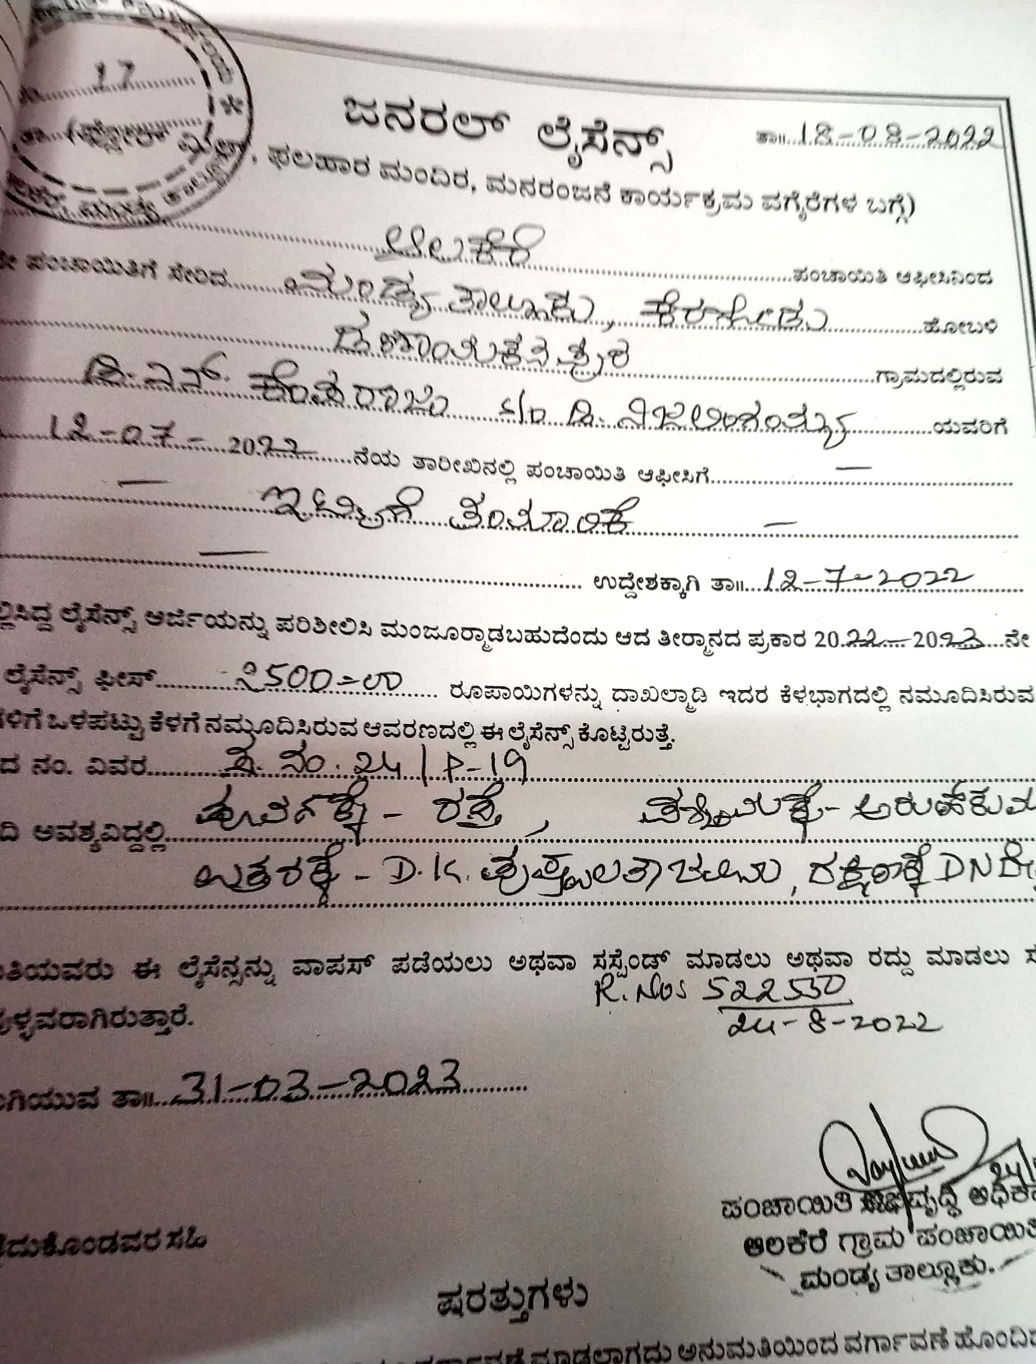 17
ಜನರಲ್ ಲೈಸೆನ್ಸ್
ತಾ॥ 18-08-2022
ಫಲಹಾರ ಮಂದಿರ, ಮನರಂಜನೆ ಕಾರ್ಯಕ್ರಮ ವಗೈರೆಗಳ ಬಗ್ಗೆ)
ಆಲಕೆರೆ ಪಂಚಾಯಿತಿ ಆಫೀಸಿನಿಂದ
ಪಂಚಾಯಿತಿಗೆ ಸೇರಿದ ಮಂಡ್ಯ ತಾಲ್ಲೂಕು, ಕೆರಗೋಡು ಹೋಬಳಿ
ಗ್ರಾಮದಲ್ಲಿರುವ
ಡಿ.ಎನ್. ಕೆಂಪರಾಜು s/o ಡಿ. ನಿಜಲಿಂಗಯ್ಯ ಯವರಿಗೆ
12-07-2022 ನೆಯ ತಾರೀಖಿನಲ್ಲಿ ಪಂಚಾಯಿತಿ ಆಫೀಸಿಗೆ —
— ಇಟ್ಟಿಗೆ ತಯಾರಿಕೆ —
— ಉದ್ದೇಶಕ್ಕಾಗಿ ತಾ॥ 12-7-2022
ಲೈಸೆನ್ಸ್ ಅರ್ಜಿಯನ್ನು ಪರಿಶೀಲಿಸಿ ಮಂಜೂರ್ಮಾಡಬಹುದೆಂದು ಆದ ತೀರ್ಮಾನದ ಪ್ರಕಾರ 2022-2023 ನೇ
ಲೈಸೆನ್ಸ್ ಫೀಸ್ 2500=00 ರೂಪಾಯಿಗಳನ್ನು ದಾಖಲ್ಮಾಡಿ ಇದರ ಕೆಳಭಾಗದಲ್ಲಿ ನಮೂದಿಸಿರುವ
ಒಳಪಟ್ಟು ಕೆಳಗೆ ನಮ್ಮೂದಿಸಿರುವ ಆವರಣದಲ್ಲಿ ಈ ಲೈಸೆನ್ಸ್ ಕೊಟ್ಟಿರುತ್ತೆ.
ದ ನಂ. ವಿವರ ಸ. ನಂ. 24/P-19
ದಿ ಅವಶ್ಯವಿದ್ದಲ್ಲಿ ಪೂರ್ವಕ್ಕೆ - ರಸ್ತೆ, ಪಶ್ಚಿಮಕ್ಕೆ -
ಉತ್ತರಕ್ಕೆ - D.K. ಪುಷ್ಪಲತಾ ಜಮೀನು, ದಕ್ಷಿಣಕ್ಕೆ DN
ಈ ಲೈಸೆನ್ಸನ್ನು ವಾಪಸ್ ಪಡೆಯಲು ಅಥವಾ ಸಸ್ಪೆಂಡ್ ಮಾಡಲು ಅಥವಾ ರದ್ದು ಮಾಡಲು
ಳ್ಳವರಾಗಿರುತ್ತಾರೆ.
R. Nos 522530
24-8-2022
ಗಿಯುವ ತಾ॥ 31-03-2023
ಪಂಚಾಯಿತಿ ಅಭಿವೃದ್ಧಿ ಅಧಿಕ
ಆಲಕೆರೆ ಗ್ರಾಮ ಪಂಚಾಯಿತಿ
ಮಂಡ್ಯ ತಾಲ್ಲೂಕು.
ದುಕೊಂಡವರ ಸಹಿ
ಷರತ್ತುಗಳು
ಮಾಡಲಾಗದು ಅನುಮತಿಯಿಂದ ವರ್ಗಾವಣೆ ಹೊಂದಿ